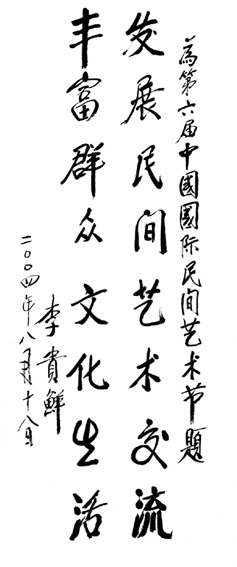 为第六届中國國际民间艺术节题
发展民间艺术交流
丰富群众文化生活
李貴鲜
二〇〇四年八月十八日